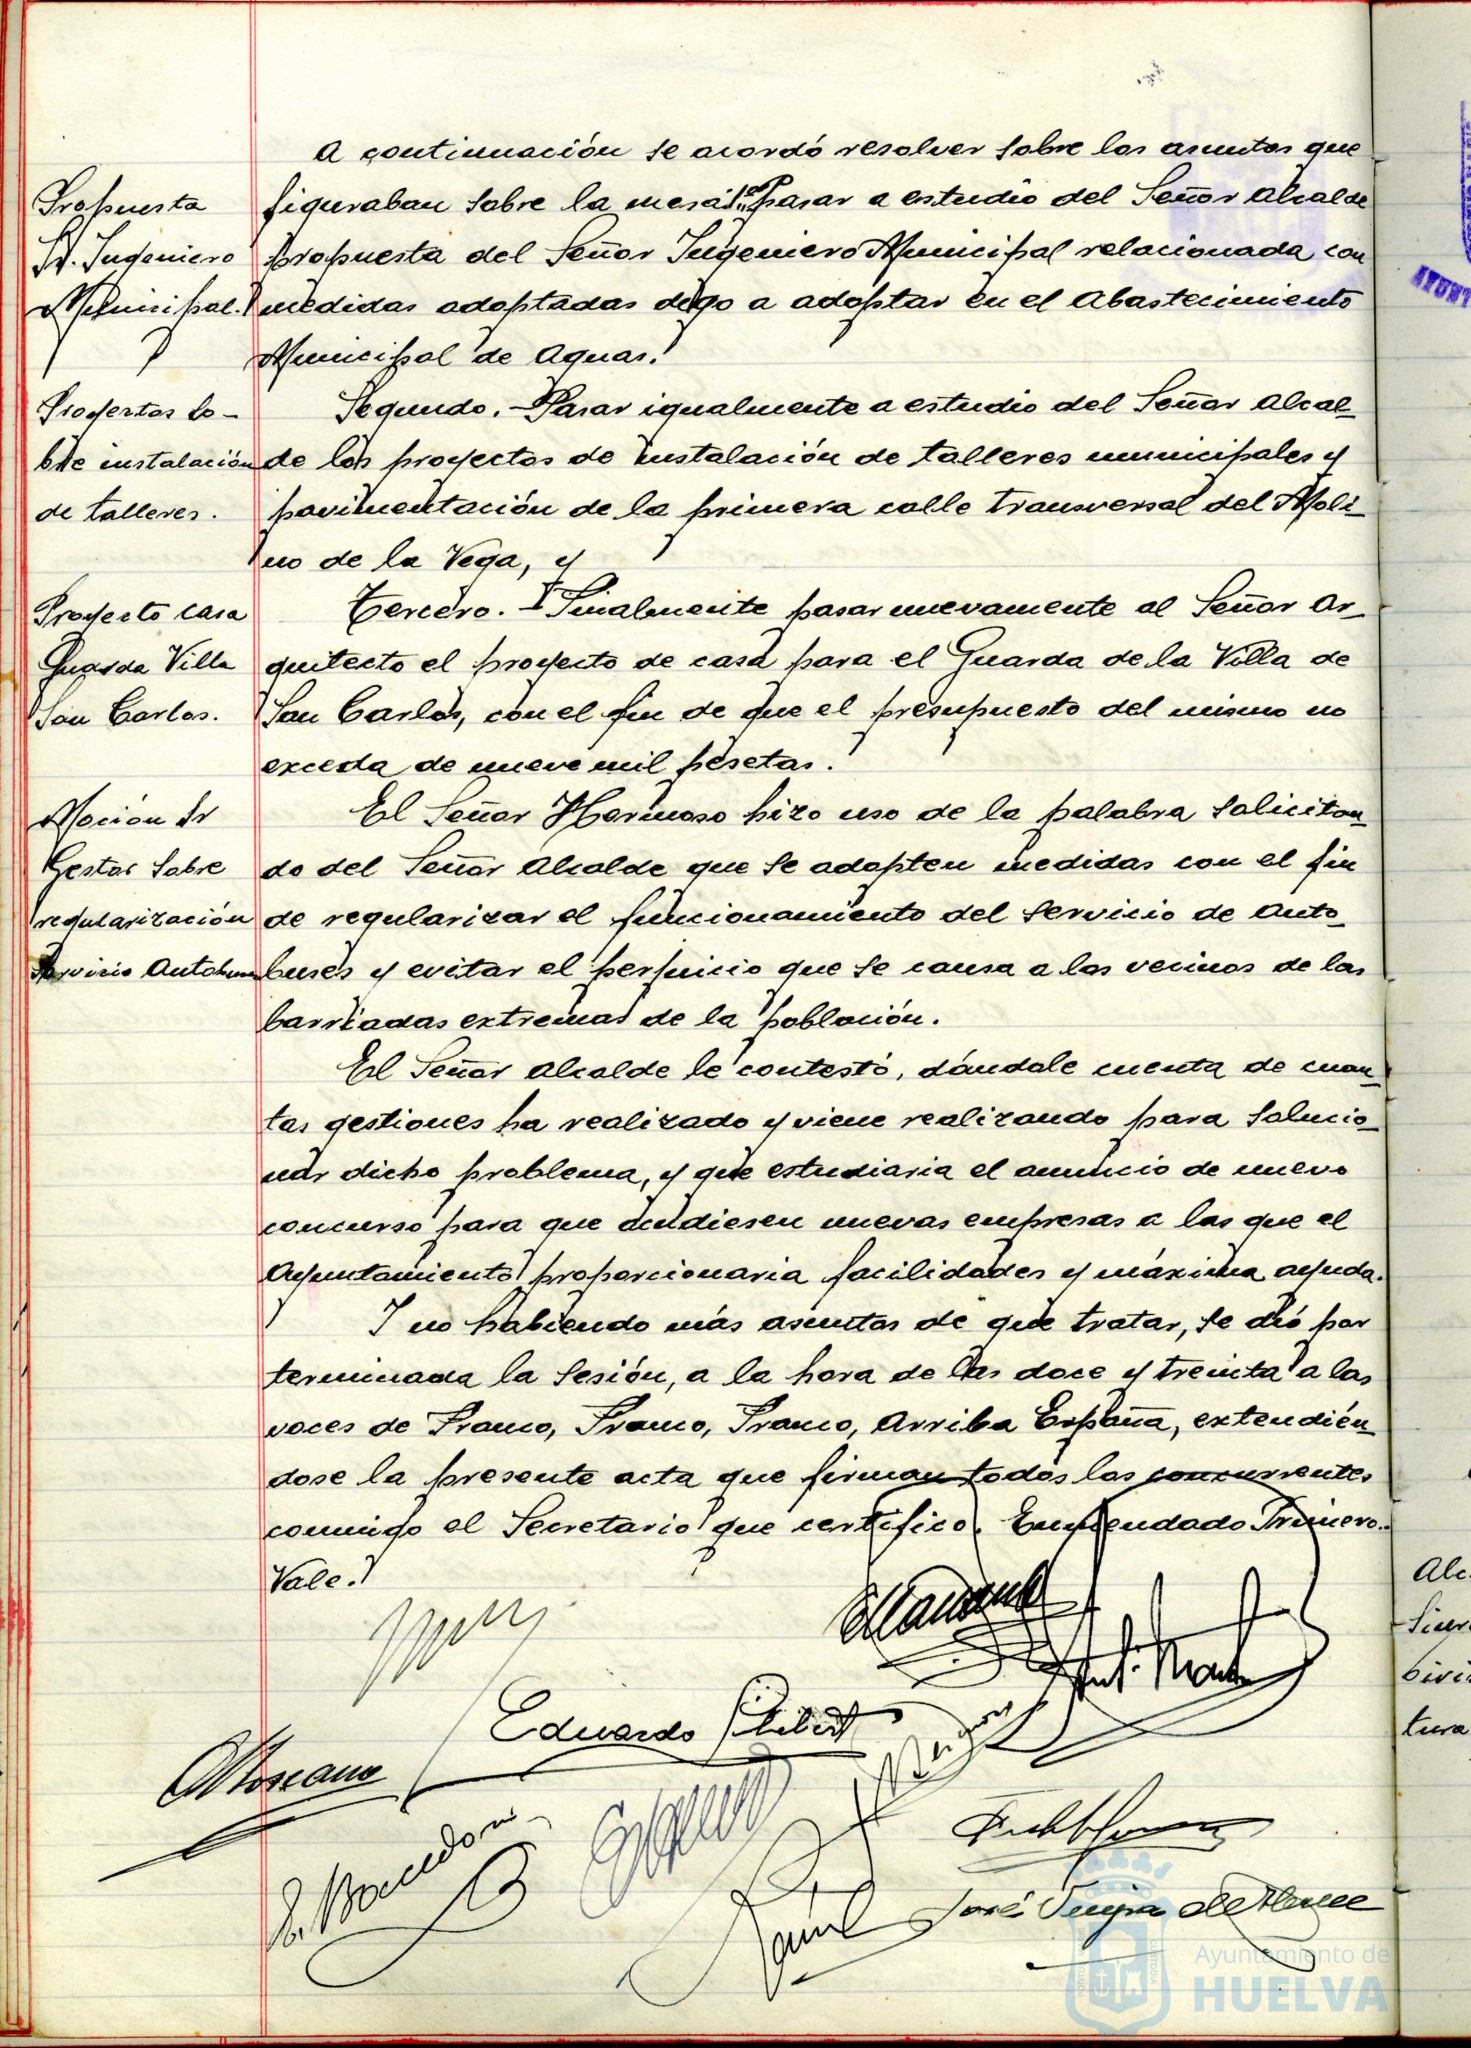 A continuación se acordó resolver sobre los asuntos que
Propuesta
Sr. Ingeniero
Municipal.
figuraban sobre la mesa: 1º Pasar a estudio del Señor Alcalde
propuesta del Señor Ingeniero Municipal relacionada con
medidas adoptadas digo a adoptar en el Abastecimiento
Municipal de Aguas.
Proyectos so-
bre instalación
de talleres.
Segundo.- Pasar igualmente a estudio del Señor Alcal-
de los proyectos de instalación de talleres municipales y
pavimentación de la primera calle transversal del Moli-
no de la Vega, y
Proyecto casa
Guarda Villa
San Carlos.
Tercero.- Finalmente pasar nuevamente al Señor Ar-
quitecto el proyecto de casa para el Guarda de la Villa de
San Carlos, con el fin de que el presupuesto del mismo no
exceda de nueve mil pesetas.
Moción Sr
Gestor sobre
regularización
Servicio Autobuses
El Señor Hermoso hizo uso de la palabra solicitan-
do del Señor Alcalde que se adopten medidas con el fin
de regularizar el funcionamiento del servicio de Auto-
buses y evitar el perjuicio que se causa a los vecinos de las
barriadas extremas de la población.
El Señor Alcalde le contestó, dándole cuenta de cuan-
tas gestiones ha realizado y viene realizando para solucio-
nar dicho problema, y que estudiaria el anuncio de nuevo
concurso para que acudiesen nuevas empresas a las que el
Ayuntamiento proporcionaria facilidades y máxima ayuda.
Y no habiendo más asuntos de que tratar, se dió por
terminada la sesión, a la hora de las doce y treinta a las
voces de Franco, Franco, Franco, Arriba España, extendién-
dose la presente acta que firman todos los concurrentes
conmigo el Secretario que certifico. Enmendado Primero.-
Vale.
Eduardo
José de
Ayuntamiento de
HUELVA
Alc
tura